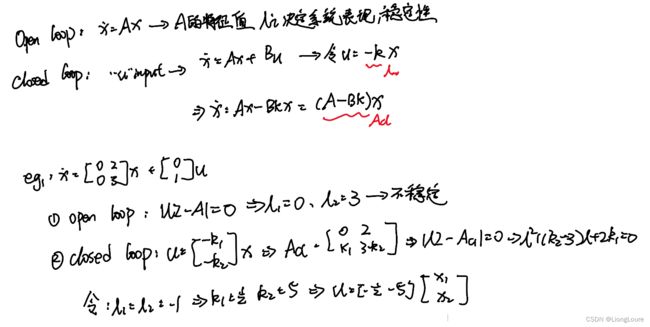 Open loop: ẋ=Ax → A的特征值 λi 决定系统表现,稳定性
closed loop: "u"input → ẋ=Ax+Bu → 令u=-kx
⇒ ẋ=Ax-Bkx=(A-Bk)x
Acl
eg1: ẋ=[0 2; 0 3]x+[0; 1]u
① open loop: |λI-A|=0 ⇒ λ1=0、λ2=3 → 不稳定
② closed loop: u=[-k1 -k2]x ⇒ Acl=[0 2; -k1 3-k2] ⇒ |λI-Acl|=0 ⇒ λ²+(k2-3)λ+2k1=0
令:λ1=λ2=-1 ⇒ k1=½ k2=5 ⇒ u=[-½ -5][x1; x2]
CSDN @LiongLoure